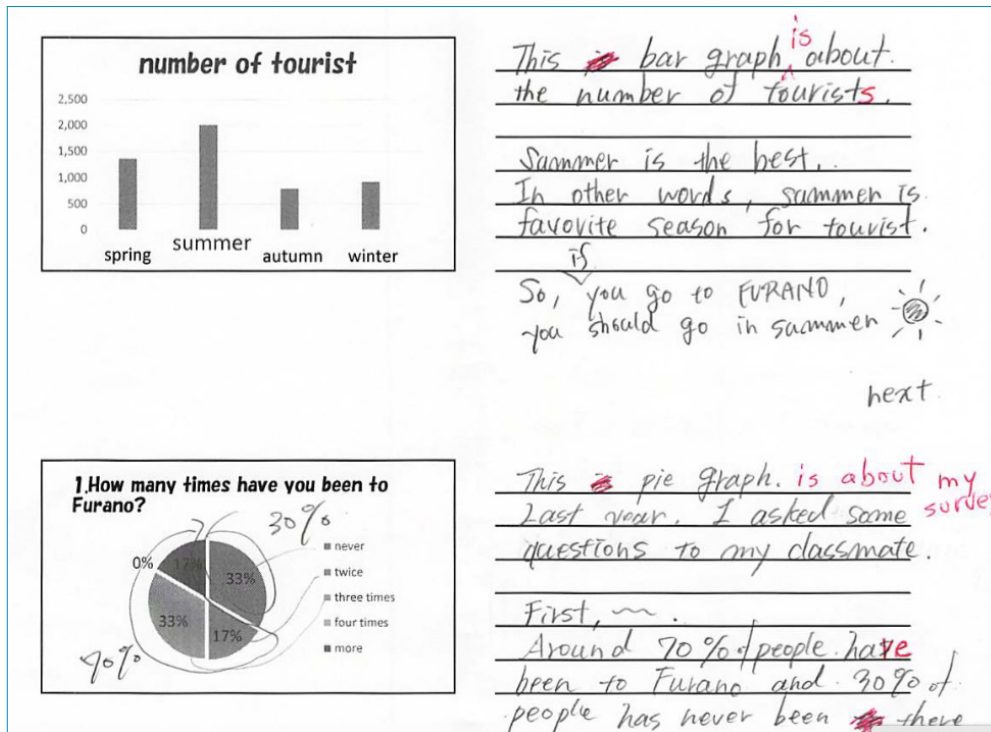 number of tourist
2,500
2,000
1,500
1,000
500
0
spring
summer
autumn
winter
This bar graph is about
the number of tourists.
Sammer is the best.
In other words, sammer is
favorite season for tourist.
So, if you go to FURANO,
you should go in sammer
next
1.How many times have you been to
Furano?
30%
0%
17%
33%
33%
17%
70%
never
twice
three times
four times
more
This pie graph. is about my
survey
Last year. I asked some
questions to my classmate.
First,
Around 70% of people have
been to Furano and 30% of
people has never been there